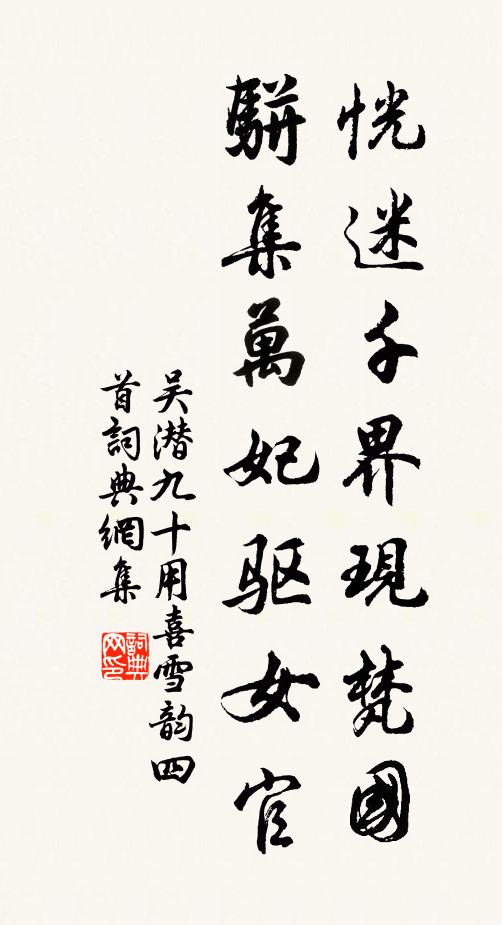 恍迷千界現梵國
駢集萬妃驱女官
吴潜九十用喜雪韵四
首詞典網集
詞典网印